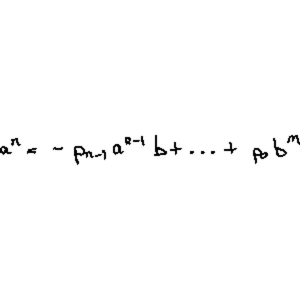 aⁿ = - pₙ₋₁ aⁿ⁻¹ b + ... + p₀ bⁿ